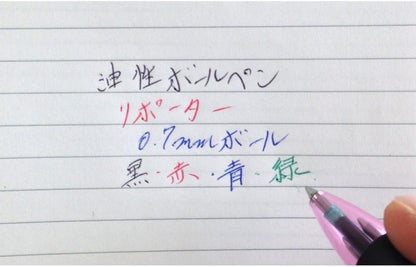 油性ボールペン
リポーター
0.7mmボール
黒・赤・青・緑